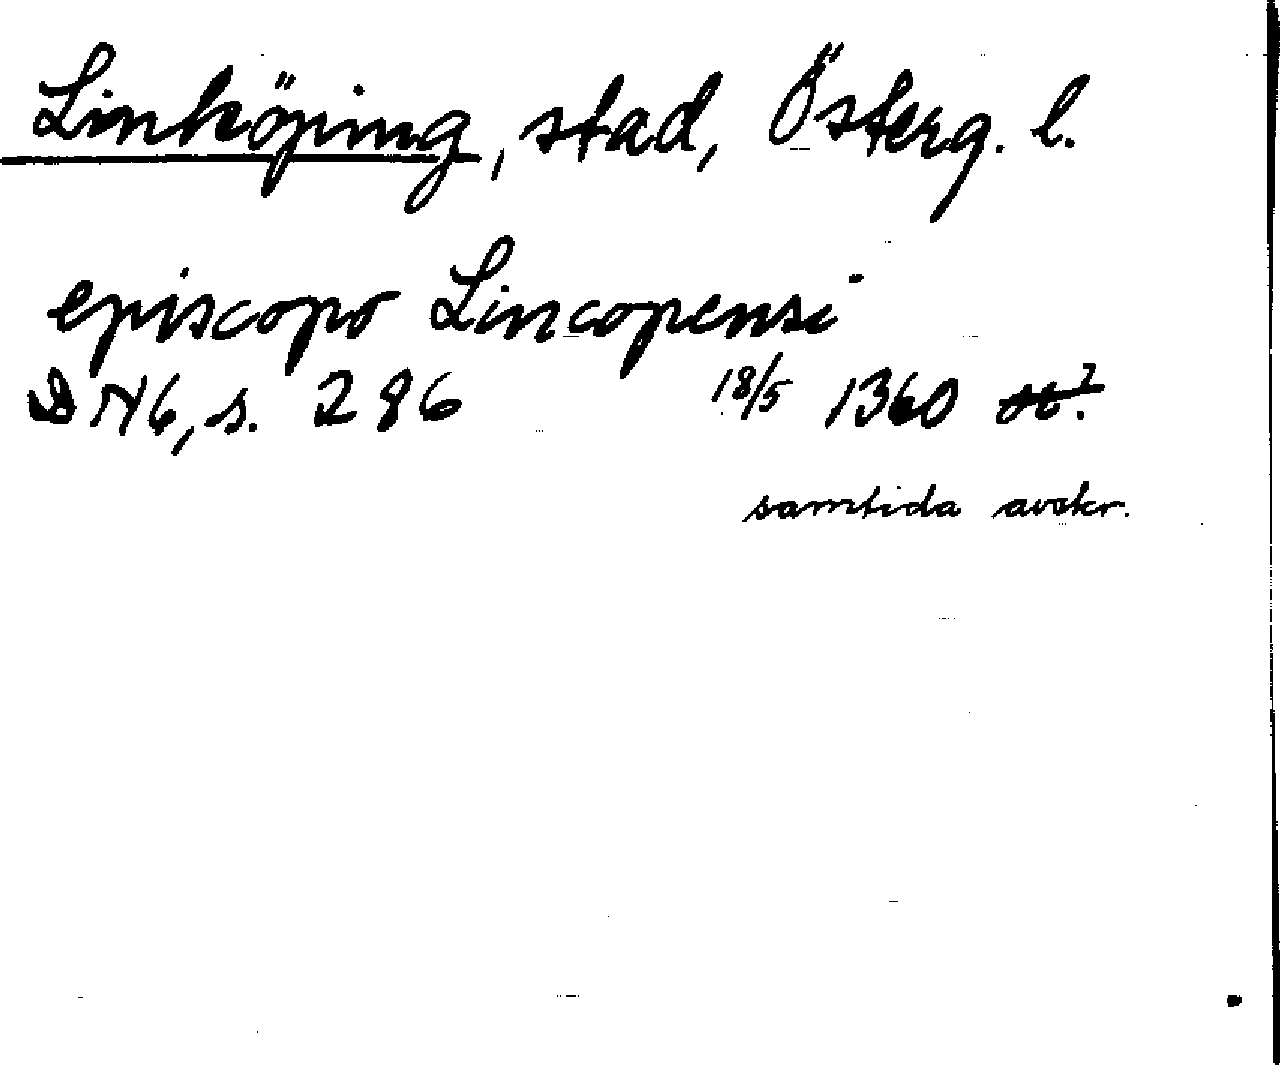 Linköping, stad, Österg. l.
episcopo Lincopensi
DN6, s. 286 18/5 1360 st?
samtida avskr.